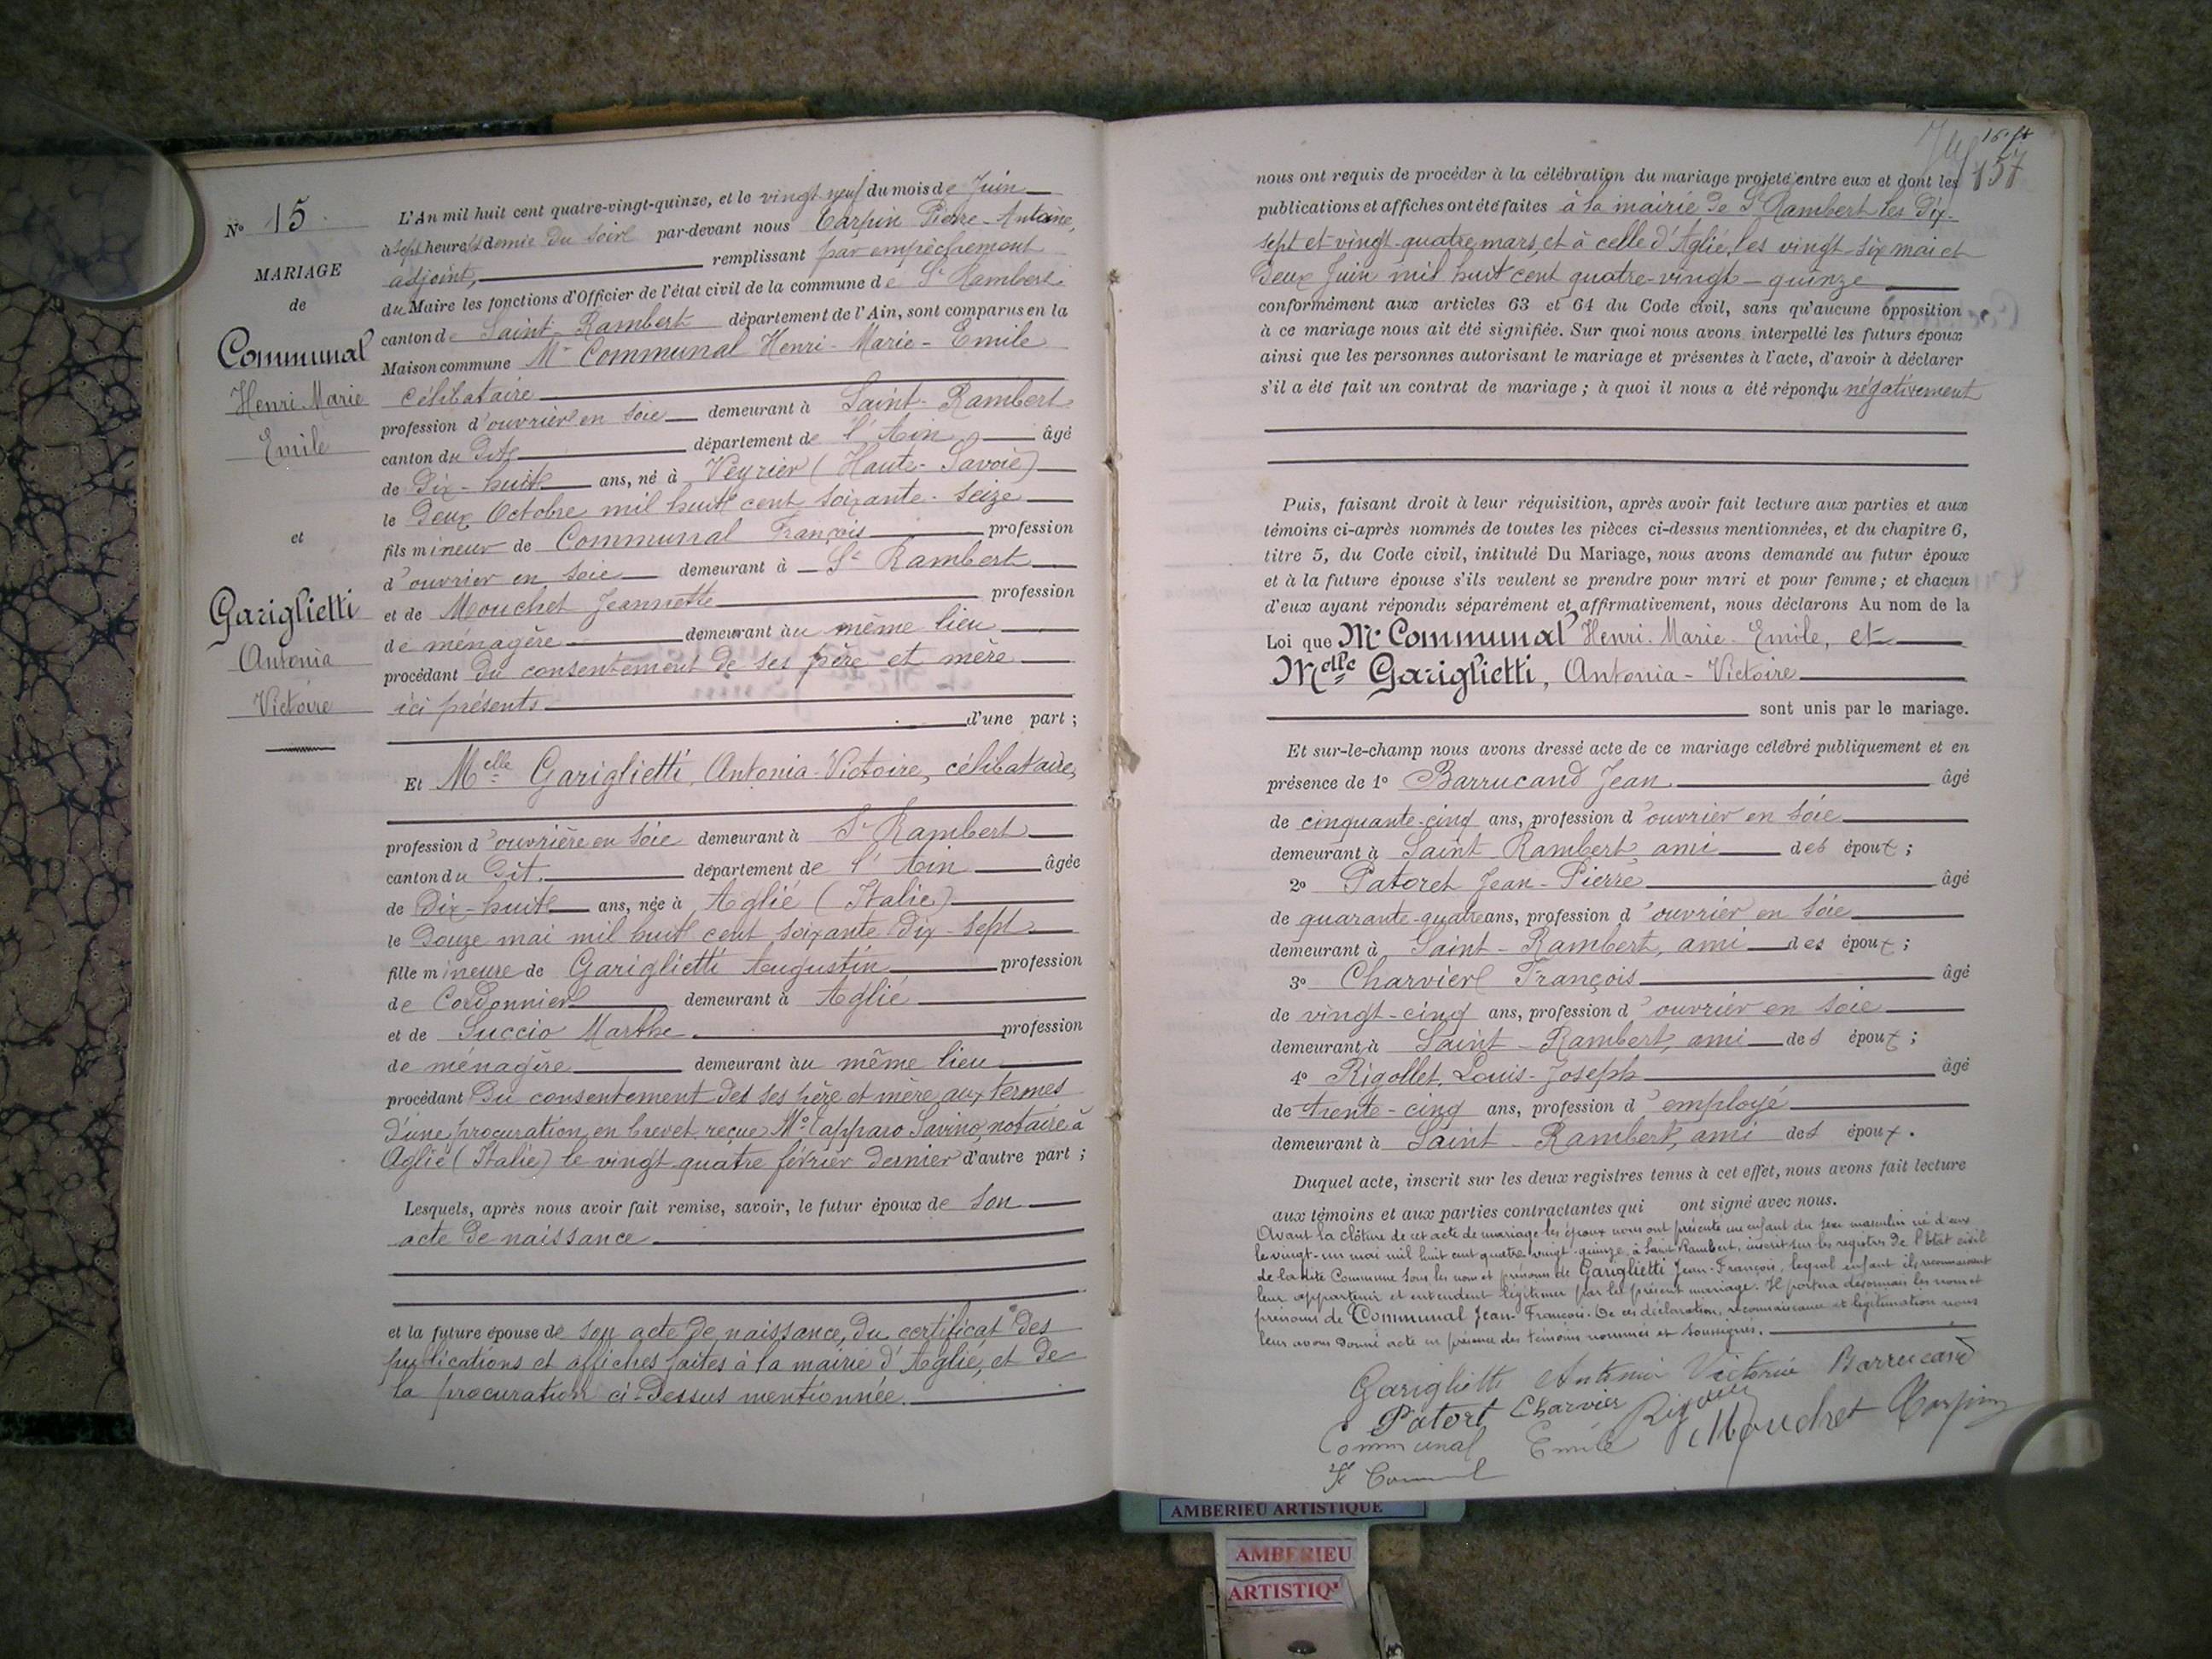 N° 15
MARIAGE
de
Communal
Henri-Marie
Emile
et
Gariglietti
Antonia
Victoire
L'An mil huit cent quatre-vingt-quinze, et le vingt neuf du mois de Juin
à sept heures et demie du soir par-devant nous Carpin Pierre-Antoine,
adjoint, remplissant par empêchement
du Maire les fonctions d'Officier de l'état civil de la commune de St Rambert
canton de Saint-Rambert département de l'Ain, sont comparus en la
Maison commune Mr Communal Henri-Marie-Emile
célibataire
profession d'ouvrier en soie demeurant à Saint-Rambert
canton du dit département de l'Ain âgé
de dix-huit ans, né à Veyrier (Haute-Savoie)
le deux Octobre mil huit cent soixante-seize
fils mineur de Communal François profession
d'ouvrier en soie demeurant à St Rambert
et de Mouchet Jeannette profession
de ménagère demeurant au même lieu
procédant du consentement de ses père et mère
ici présents
d'une part ;
Et Melle Gariglietti, Antonia-Victoire, célibataire,
profession d'ouvrière en soie demeurant à St Rambert
canton du dit département de l'Ain âgée
de dix-huit ans, née à Aglié (Italie)
le douze mai mil huit cent soixante-dix-sept
fille mineure de Gariglietti Augustin profession
de Cordonnier demeurant à Aglié
et de Succio Marthe profession
de ménagère demeurant au même lieu
procédant du consentement des ses père et mère aux termes
d'une procuration en brevet reçue Me Capparo Savino, notaire à
Aglié (Italie) le vingt-quatre février dernier d'autre part ;
Lesquels, après nous avoir fait remise, savoir, le futur époux de son
acte de naissance
et la future épouse de son acte de naissance, du certificat des
publications et affiches faites à la mairie d'Aglié, et de
la procuration ci-dessus mentionnée.
157
nous ont requis de procéder à la célébration du mariage projeté entre eux et dont les
publications et affiches ont été faites à la mairie de St Rambert les dix-
sept et vingt-quatre mars, et à celle d'Aglié, les vingt-six mai et
deux Juin mil huit cent quatre-vingt-quinze
conformément aux articles 63 et 64 du Code civil, sans qu'aucune opposition
à ce mariage nous ait été signifiée. Sur quoi nous avons interpellé les futurs époux
ainsi que les personnes autorisant le mariage et présentes à l'acte, d'avoir à déclarer
s'il a été fait un contrat de mariage ; à quoi il nous a été répondu négativement
Puis, faisant droit à leur réquisition, après avoir fait lecture aux parties et aux
témoins ci-après nommés de toutes les pièces ci-dessus mentionnées, et du chapitre 6,
titre 5, du Code civil, intitulé Du Mariage, nous avons demandé au futur époux
et à la future épouse s'ils veulent se prendre pour mari et pour femme ; et chacun
d'eux ayant répondu séparément et affirmativement, nous déclarons Au nom de la
Loi que Mr Communal Henri-Marie-Emile, et
Melle Gariglietti, Antonia-Victoire
sont unis par le mariage.
Et sur-le-champ nous avons dressé acte de ce mariage célébré publiquement et en
présence de 1° Barrucand Jean âgé
de cinquante-cinq ans, profession d'ouvrier en soie
demeurant à Saint-Rambert ami des époux ;
2° Patoret Jean-Pierre âgé
de quarante-quatre ans, profession d'ouvrier en soie
demeurant à Saint-Rambert, ami des époux ;
3° Charvier François âgé
de vingt-cinq ans, profession d'ouvrier en soie
demeurant à Saint-Rambert, ami des époux ;
4° Rigollet, Louis-Joseph âgé
de trente-cinq ans, profession d'employé
demeurant à Saint-Rambert, ami des époux.
Duquel acte, inscrit sur les deux registres tenus à cet effet, nous avons fait lecture
aux témoins et aux parties contractantes qui ont signé avec nous.
Avant la clôture de cet acte de mariage les époux nous ont présenté un enfant du sexe masculin né d'eux
le vingt-un mai mil huit cent quatre-vingt-quinze, à Saint Rambert, inscrit sur les registres de l'état civil
de la dite Commune sous les nom et prénoms de Gariglietti Jean-François, lequel enfant ils reconnaissent
leur appartenir et entendent légitimer par le présent mariage. Il portera désormais les nom et
prénoms de Communal Jean-François. De ces déclaration, reconnaissance et légitimation nous
leur avons donné acte en présence des témoins nommés et soussignés.
Gariglietti Antonia Victoria Barrucand
Patort Charvier
Communal Emile Mouchet Carpin
AMBERIEU ARTISTIQUE
AMBERIEU
ARTISTIQ